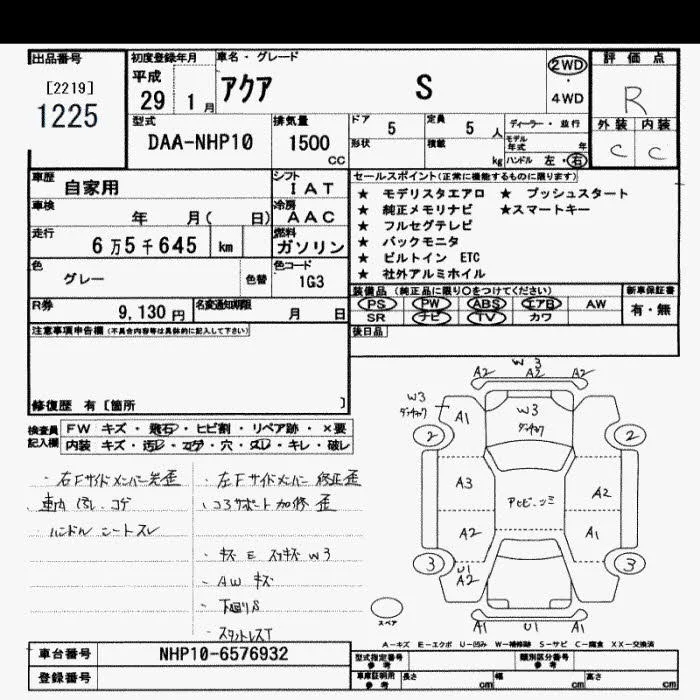 出品番号 初度登録年月 車名・グレード 評価点
[2219] 平成 アクア S 2WD R
1225 29 1月 4WD
型式 排気量 ドア 5 定員 5 人 ディーラー・並行 外装 内装
DAA-NHP10 1500 CC 形状 積載 kg モデル年式 年 C C
ハンドル 左・右
車歴 自家用 シフト IAT セールスポイント(正常に機能するものに限ります)
車検 年 月( 日) 冷房 AAC
走行 6万5千645 km 燃料 ガソリン
色 グレー 色替 色コード 1G3
★ モデリスタエアロ ★ プッシュスタート
★ 純正メモリナビ ★スマートキー
★ フルセグテレビ
★ バックモニタ
★ ビルトイン ETC
★ 社外アルミホイル
R券 9,130円 名変通知期限 月 日
装備品 (純正品に限り○をつけてください) 新車保証書
PS PW ABS エアB AW 有・無
SR ナビ TV カワ
注意事項申告欄(不具合内容等は具体的に記入して下さい) 後日品
修復歴 有 [箇所 ]
検査員記入欄 FW キズ・飛石・ヒビ割・リペア跡・×要
内装 キズ・汚レ・コゲ・穴・スレ・キレ・破レ
・右Fサイドメンバー先歪
・車内 汚レ コゲ
・ハンドル シートスレ
・左Fサイドメンバー 修正歪
・コアサポート加修 歪
・キズ E W3
・AW キズ
・下廻りS
・スタットレスT
W3
A2 A2 A2
W3 A1 W3
2 2
A3 A2
A2 A1
3 U1 A2 3
A1 U1 A1
スペア
A-キズ E-エクボ U-凹み W-補修跡 S-サビ C-腐食 XX-交換済
車台番号 NHP10-6576932
登録番号
型式指定番号 参考 類別区分番号 参考
車庫証明用 参考 長さ cm 幅 cm 高さ cm